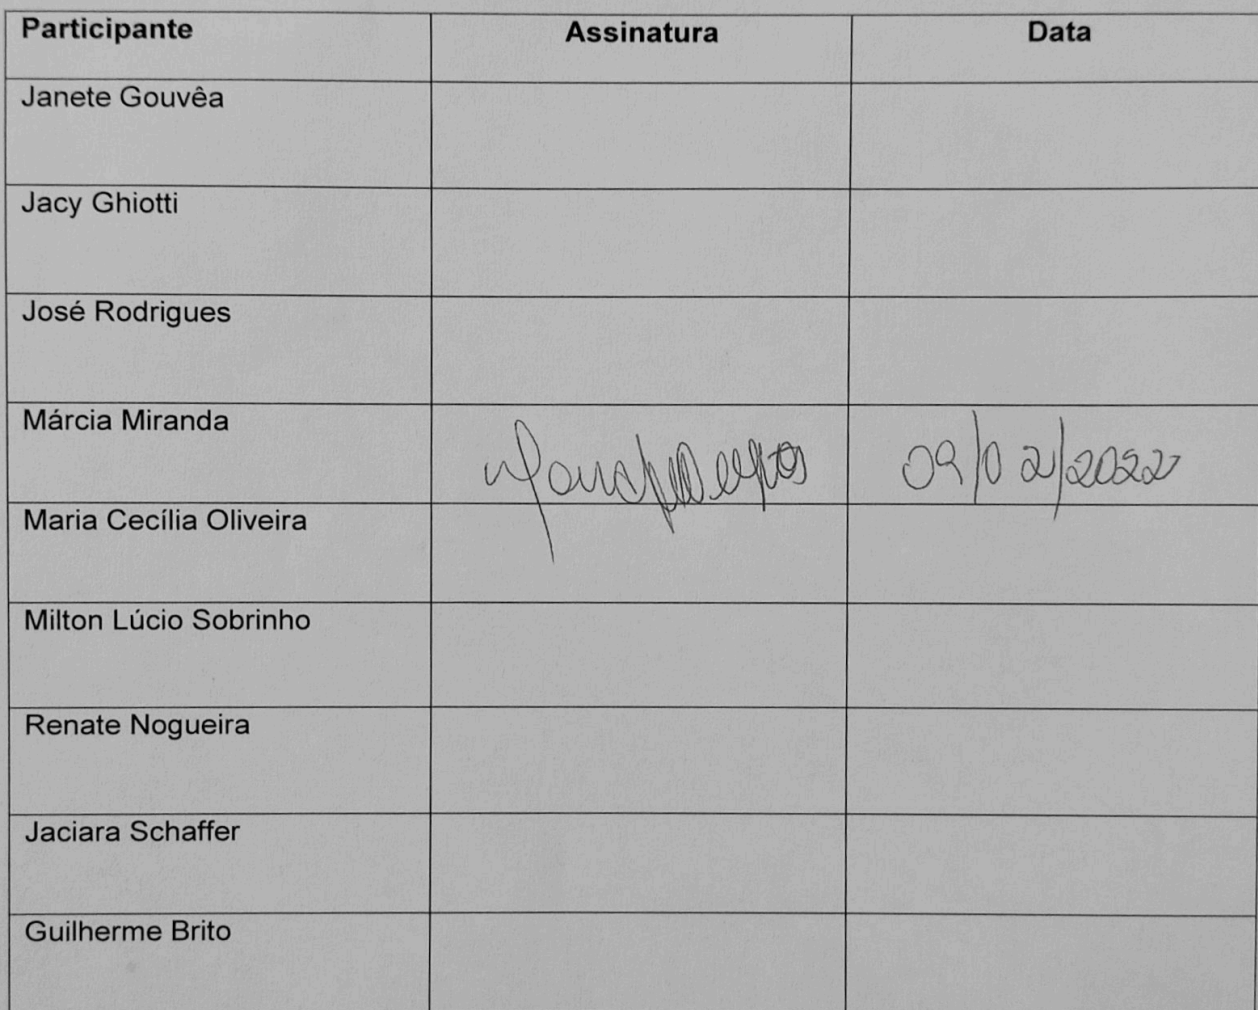 Participante Assinatura Data
Janete Gouvêa
Jacy Ghiotti
José Rodrigues
Márcia Miranda 09/02/2022
Maria Cecília Oliveira
Milton Lúcio Sobrinho
Renate Nogueira
Jaciara Schaffer
Guilherme Brito